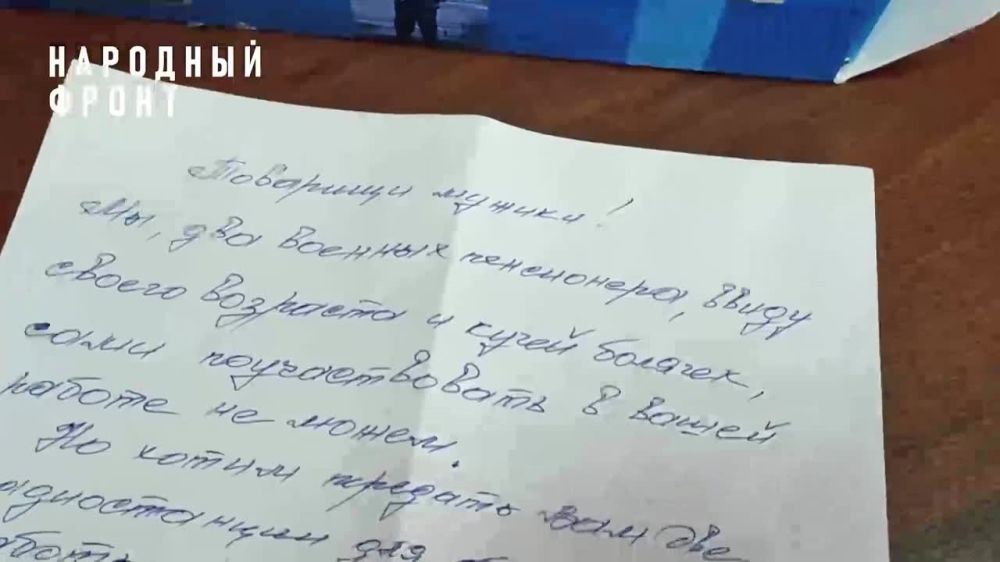 НАРОДНЫЙ
ФРОНТ
Товарищи мужики!
Мы, два военных пенсионера, ввиду
своего возраста и кучей болячек,
сами поучаствовать в вашей
работе не можем.
Но хотим передать вам две
адиостанции для